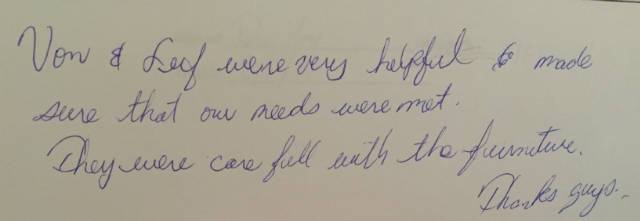 Von & Leif were very helpful & made
sure that our needs were met.
They were care full with the furniture.
Thanks guys.